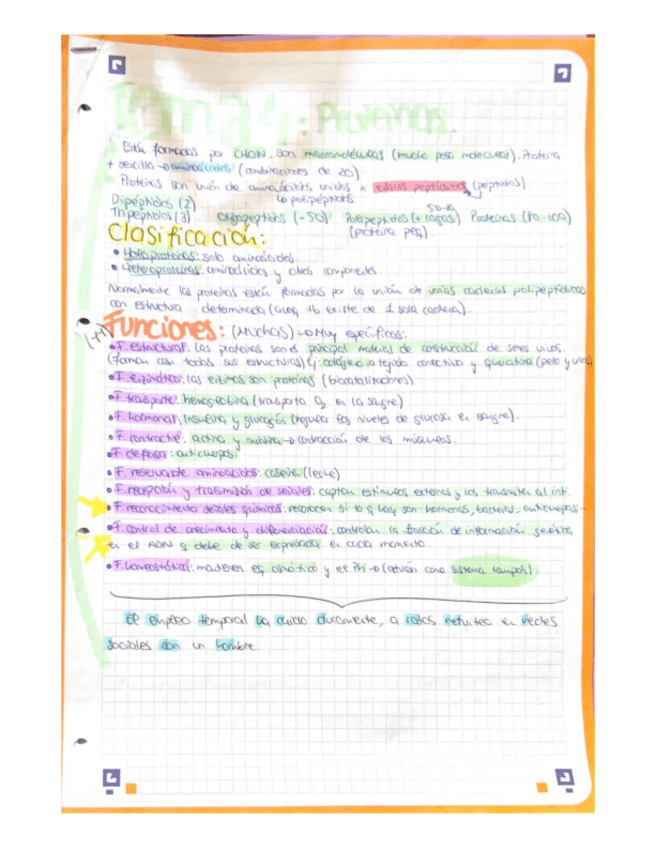 Tema 4: Proteínas.
Están formadas por CHON. Son macromoléculas (mucho peso molecular). Proteína
+ sencilla → aminoácidos (combinaciones de 20)
Proteínas son unión de aminoácidos unidos x enlaces peptídicos (péptidos)
↳ polipéptidos
Dipéptidos (2)
Tripéptidos (3) Oligopéptidos (-50) Polipéptidos (+ largos) Proteínas (80-100)
(proteína peq)
Clasificación:
• Holoproteínas: solo aminoácidos.
• Heteroproteínas: aminoácidos y otros componentes.
Normalmente las proteínas están formadas por la unión de varias cadenas polipeptídicas
con estructura determinada (aunq tb existe de 1 sola cadena).
Funciones: (Muchas) → Muy específicas:
• F. estructural: las proteínas son el principal material de construcción de seres vivos.
(Forman con todas sus estructuras) Ej: colágeno → tejido conectivo y queratina (pelo y uñas)
• F. enzimática: las enzimas son proteínas (biocatalizadores)
• F. transporte: hemoglobina (transporta O2 en la sangre)
• F. hormonal: Insulina y glucagón (regula los niveles de glucosa en sangre).
• F. contráctil: actina y miosina → contracción de los músculos.
• F. defensa: anticuerpos
• F. reserva de aminoácidos: caseína (leche)
• F. recepción y transmisión de señales: captan estímulos externos y los transmiten al int.
• F. reconocimiento señales químicas: reconocen si lo q hay son hormonas, bacterias, anticuerpos...
• F. control de crecimiento y diferenciación: controlan la fracción de información genética
en el ADN q debe de ser expresada en cada momento.
• F. homeostática: mantienen eq. osmótico y el PH → (actúan como sistema tampón).
El empleo temporal la cuido duramente, a ratos retuiteo en redes
sociales con un hombre.